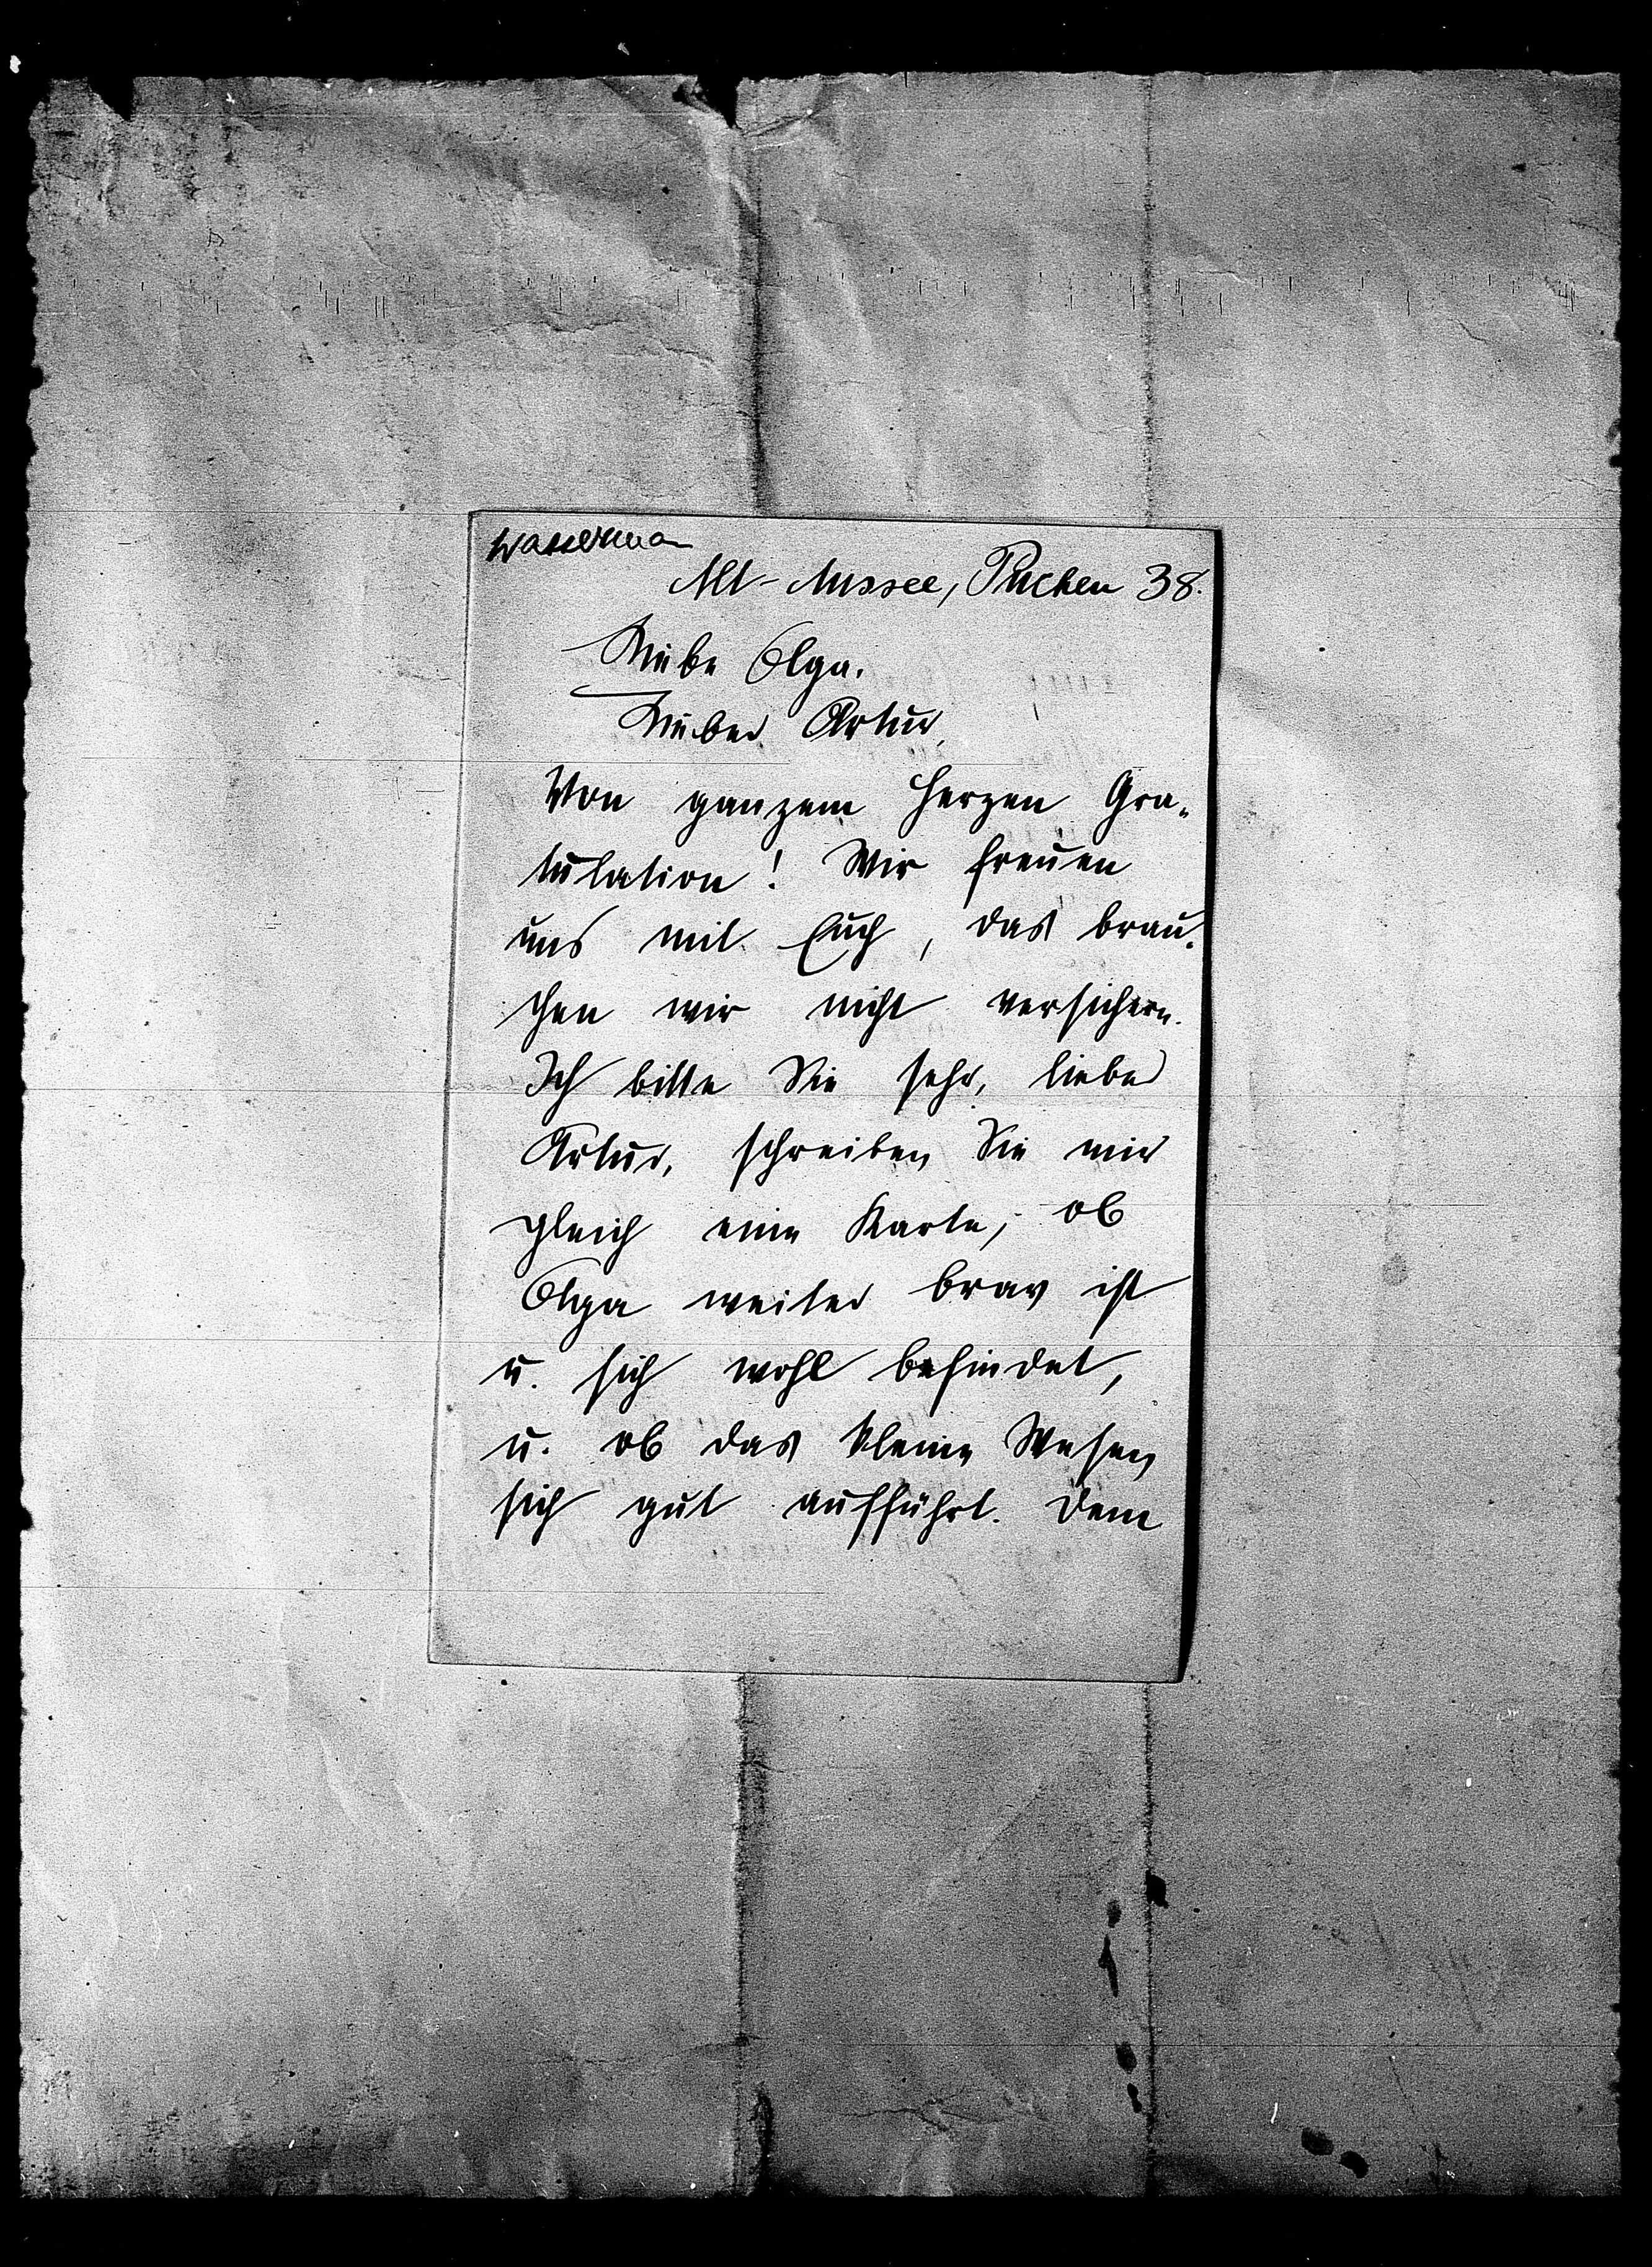 Wasserman
Alt-Aussee, Puchen 38.
Liebe Olga.
Lieber Artur,
Von ganzem Herzen Gra-
tulation! Wir freuen
uns mit Euch, das brau-
chen wir nicht versichern.
Ich bitte Sie sehr, lieber
Artur, schreiben Sie mir
gleich eine Karte, ob
Olga weiter brav ist
u. sich wohl befindet,
u. ob das kleine Wesen
sich gut aufführt. Dem